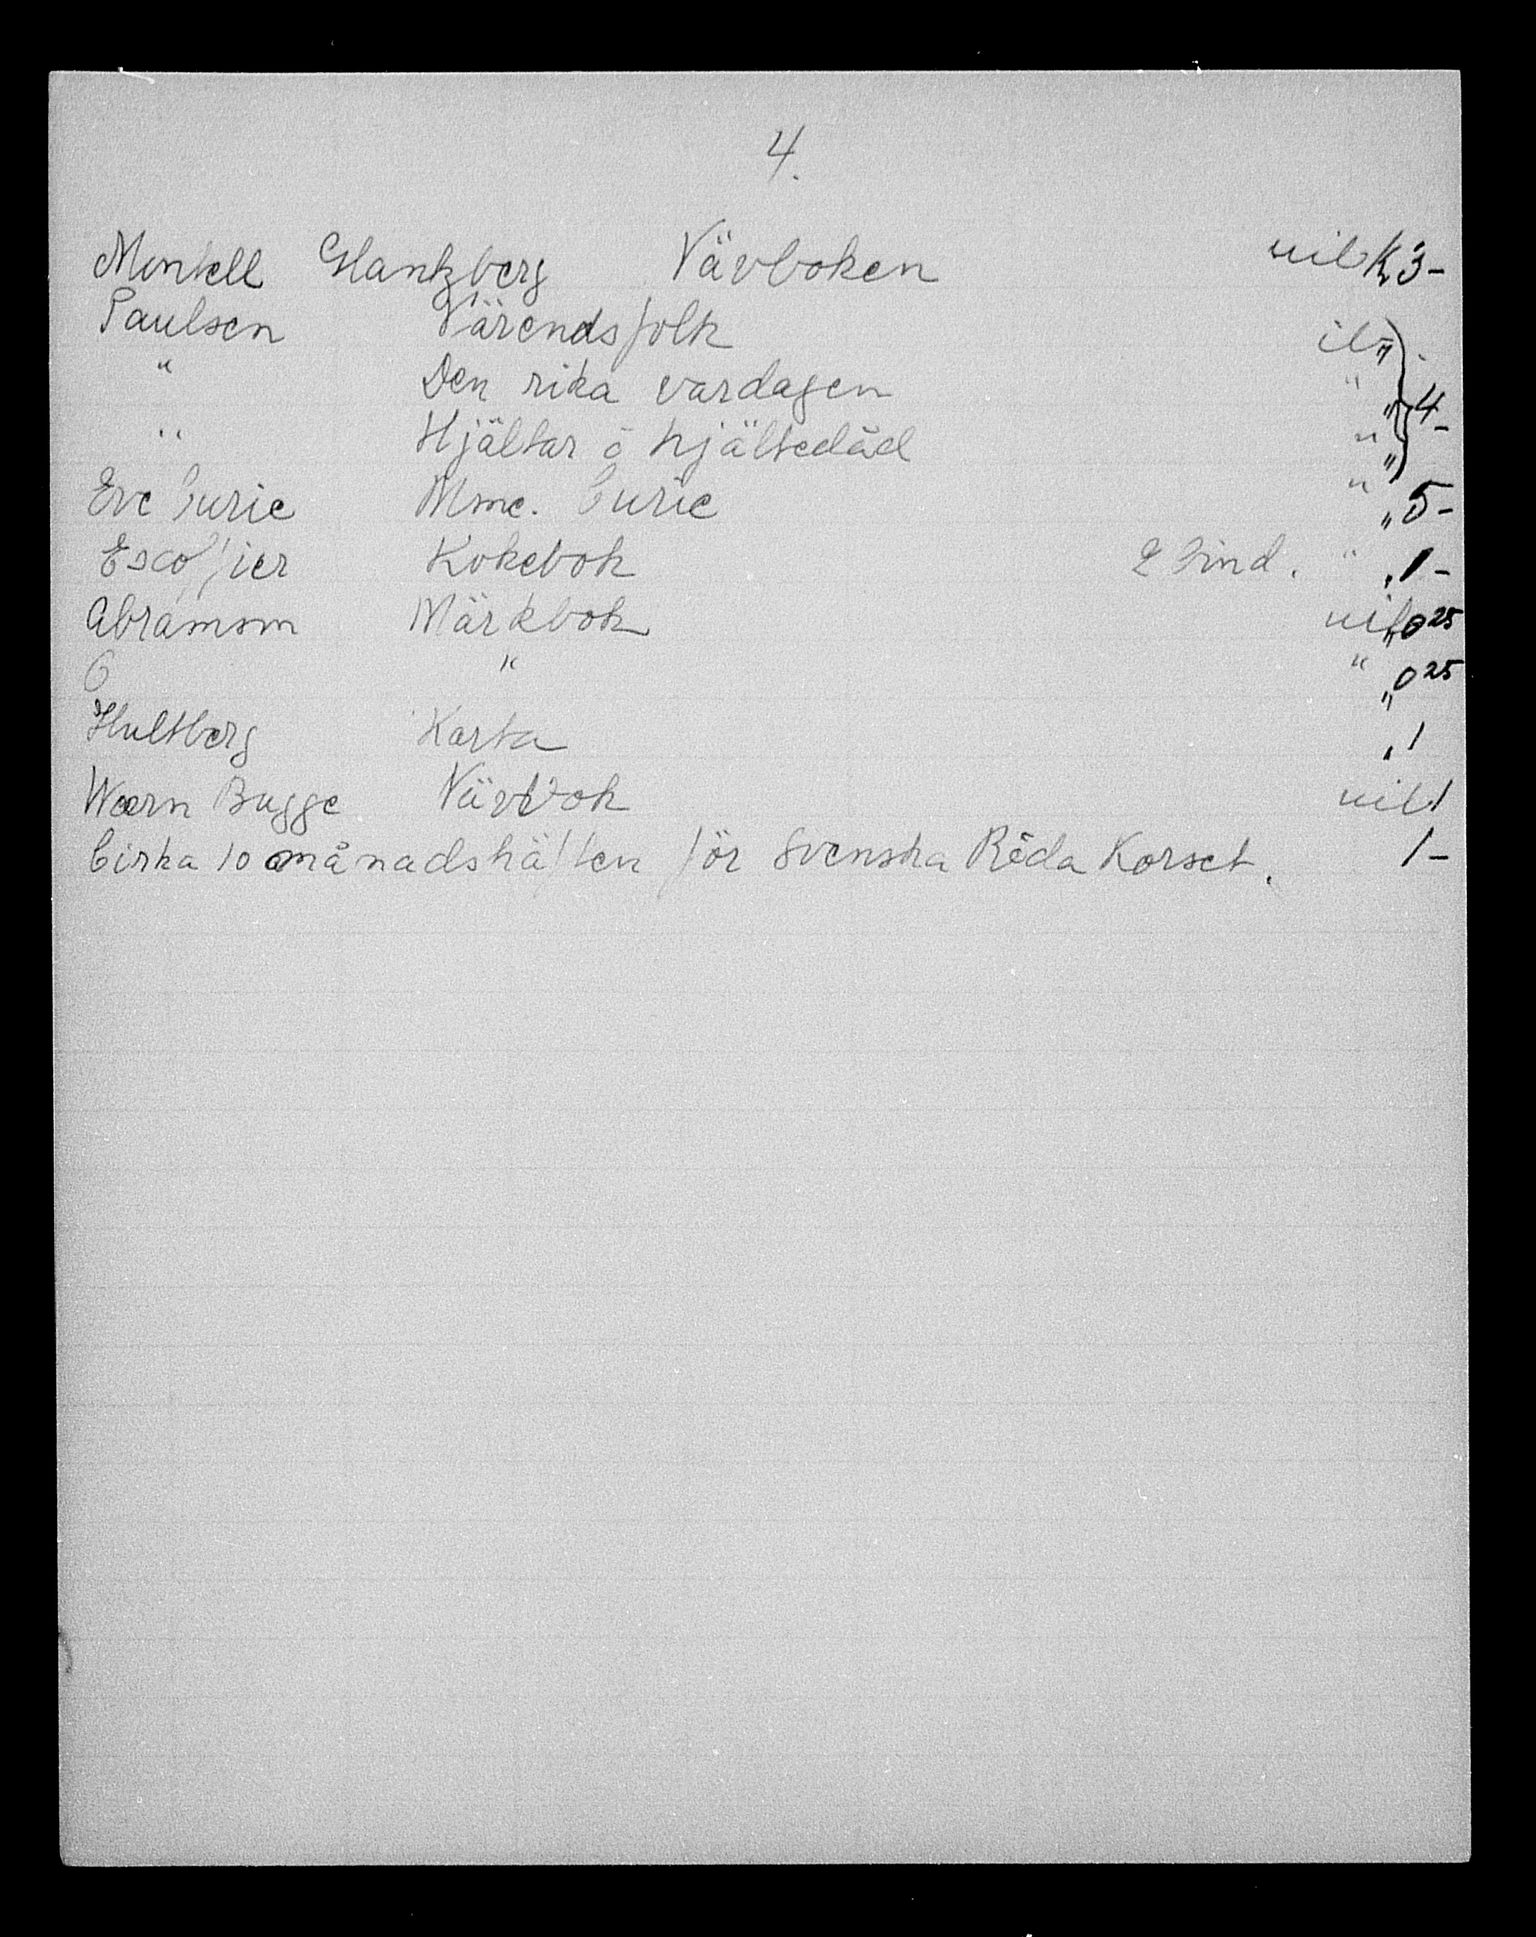 4.
Montell Glantzberg Vävboken uib Kr 3-
Paulsen Värendsfolk ib "
" Den rika vardagen " " 4-
" Hjältar o hjältedåd " "
Eve Curie Mme. Curie " " 5-
Escoffier Kokebok 2 bind. " " 1-
Abramson Märkbok uib " 0 25
" " " 0 25
Hultberg Karta " 1
Wærn Bugge Vävbok uib 1
Cirka 10 månadshäften för Svenska Röda Korset. 1-